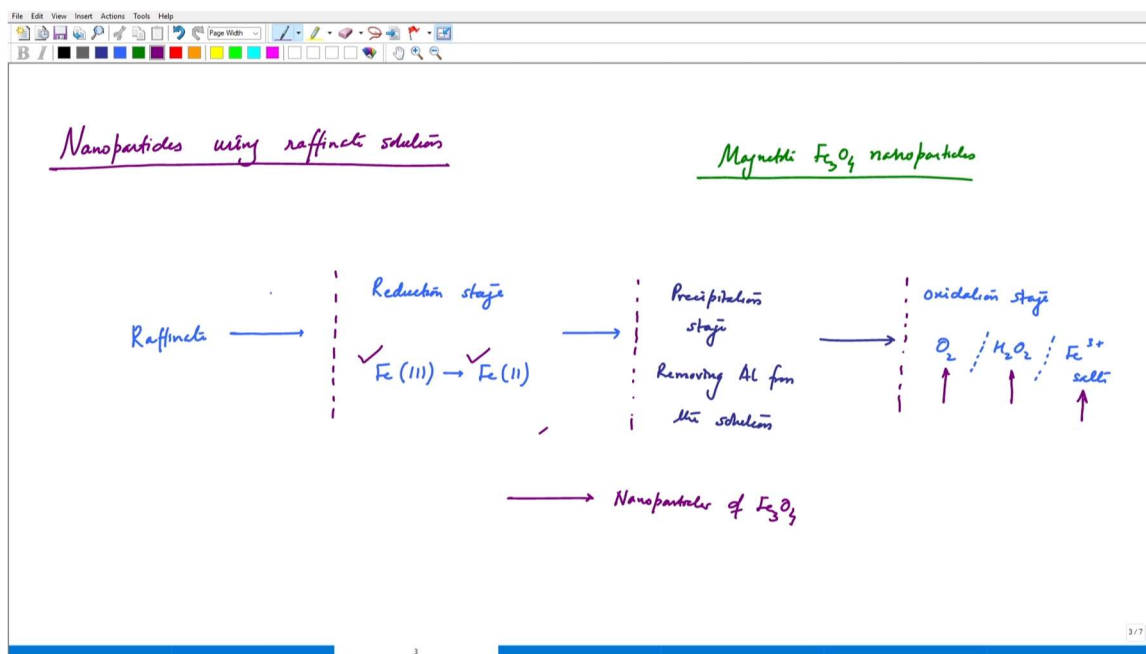 File Edit View Insert Actions Tools Help
Page Width
B I
Nanoparticles using raffinate solutions
Magnetic Fe3O4 nanoparticles
Raffinate
Reduction stage
Fe (III) → Fe (II)
Precipitation
stage
Removing Al from
the solution
Oxidation stage
O2 / H2O2 / Fe3+
salts
Nanoparticles of Fe3O4
3 / 7
3